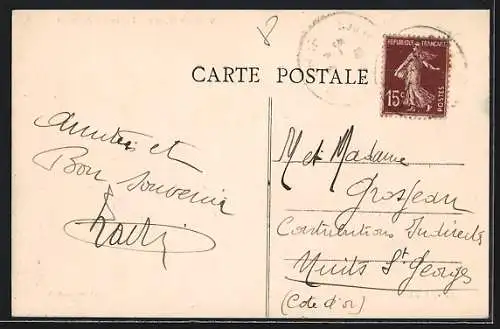 CARTE POSTALE
REPUBLIQUE FRANÇAISE
15c
POSTES
Amitiés et
Bon souvenir
M et Madame
Grosjean
Contributions Indirectes
Nuits St Georges
(Cote d'or)